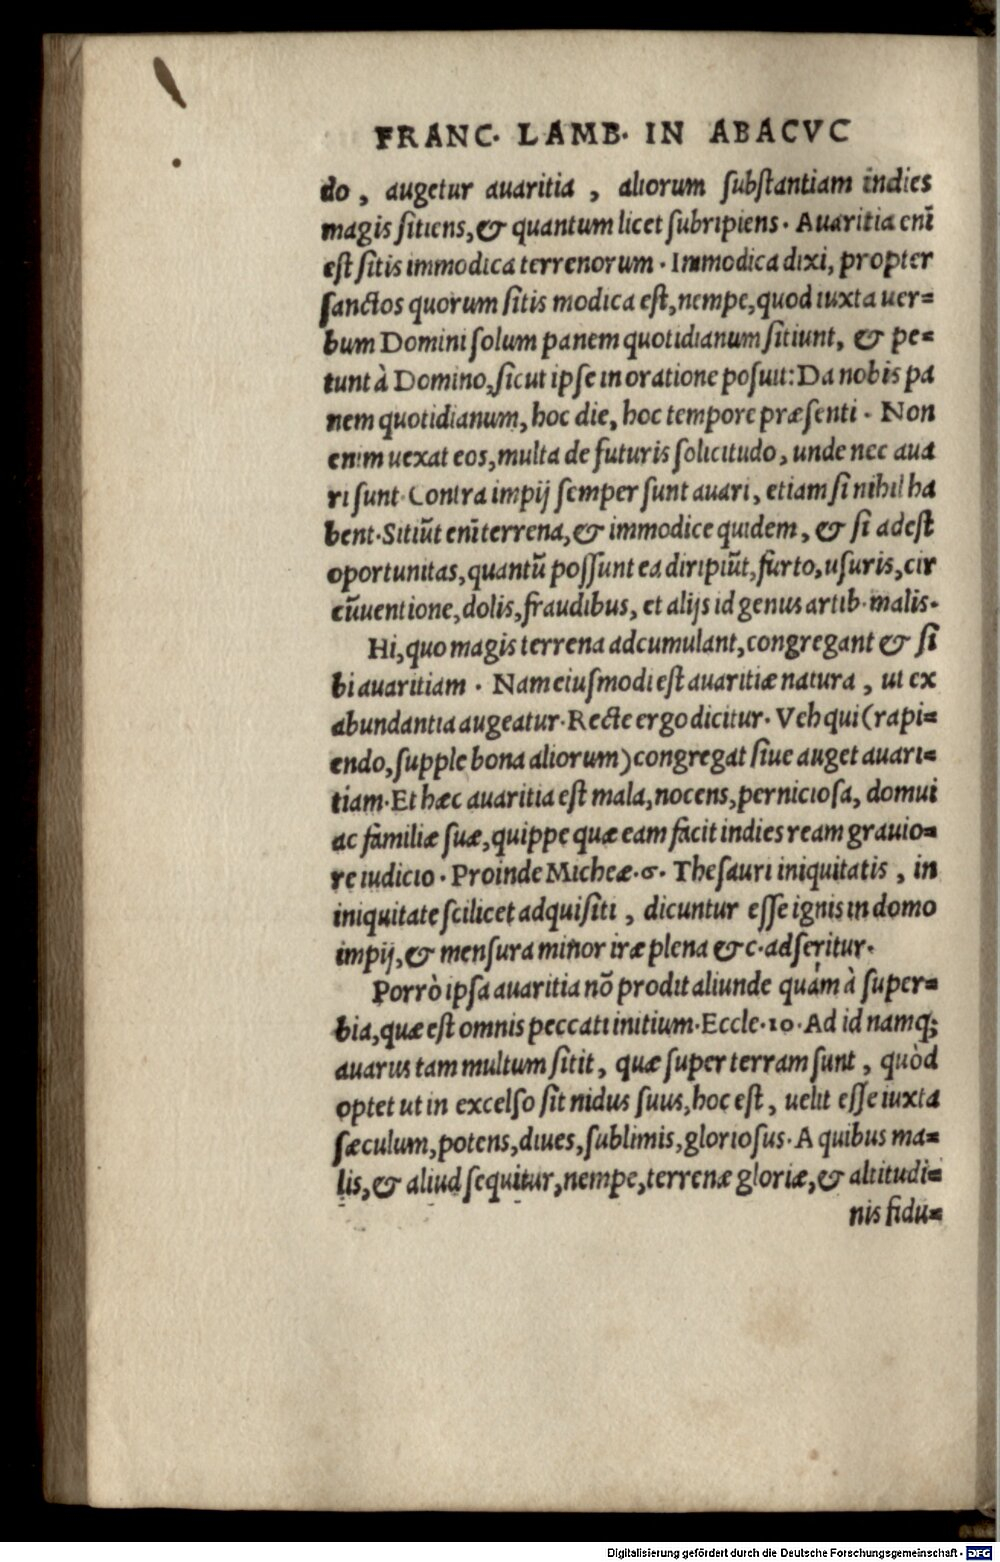 FRANC. LAMB. IN ABACVC
do, augetur auaritia, aliorum substantiam indies
magis sitiens, & quantum licet subripiens. Auaritia enī
est sitis immodica terrenorum. Immodica dixi, propter
sanctos quorum sitis modica est, nempe, quod iuxta uer=
bum Domini solum panem quotidianum sitiunt, & pe=
tunt à Domino, sicut ipse in oratione posuit: Da nobis pa
nem quotidianum, hoc die, hoc tempore præsenti. Non
enim uexat eos, multa de futuris solicitudo, unde nec aua
ri sunt. Contra impij semper sunt auari, etiam si nihil ha
bent. Sitiūt enī terrena, & immodice quidem, & si adest
oportunitas, quantū possunt ea diripiūt, furto, usuris, cir
cūuentione, dolis, fraudibus, et alijs id genus artib. malis.
Hi, quo magis terrena adcumulant, congregant & si
bi auaritiam. Nam eiusmodi est auaritiæ natura, ut ex
abundantia augeatur. Recte ergo dicitur. Veh qui (rapi=
endo, supple bona aliorum) congregat siue auget auari=
tiam. Et hæc auaritia est mala, nocens, perniciosa, domui
ac familiæ suæ, quippe quæ eam facit indies ream grauio=
re iudicio. Proinde Micheæ. 6. Thesauri iniquitatis, in
iniquitate scilicet adquisiti, dicuntur esse ignis in domo
impij, & mensura minor iræ plena &c. adseritur.
Porrò ipsa auaritia nō prodit aliunde quàm à super=
bia, quæ est omnis peccati initium. Eccle. 10. Ad id namq;
auarus tam multum sitit, quæ super terram sunt, quòd
optet ut in excelso sit nidus suus, hoc est, uelit esse iuxta
sæculum, potens, diues, sublimis, gloriosus. A quibus ma=
lis, & aliud sequitur, nempe, terrenæ gloriæ, & altitudi=
nis fidu=
Digitalisierung gefördert durch die Deutsche Forschungsgemeinschaft - DFG